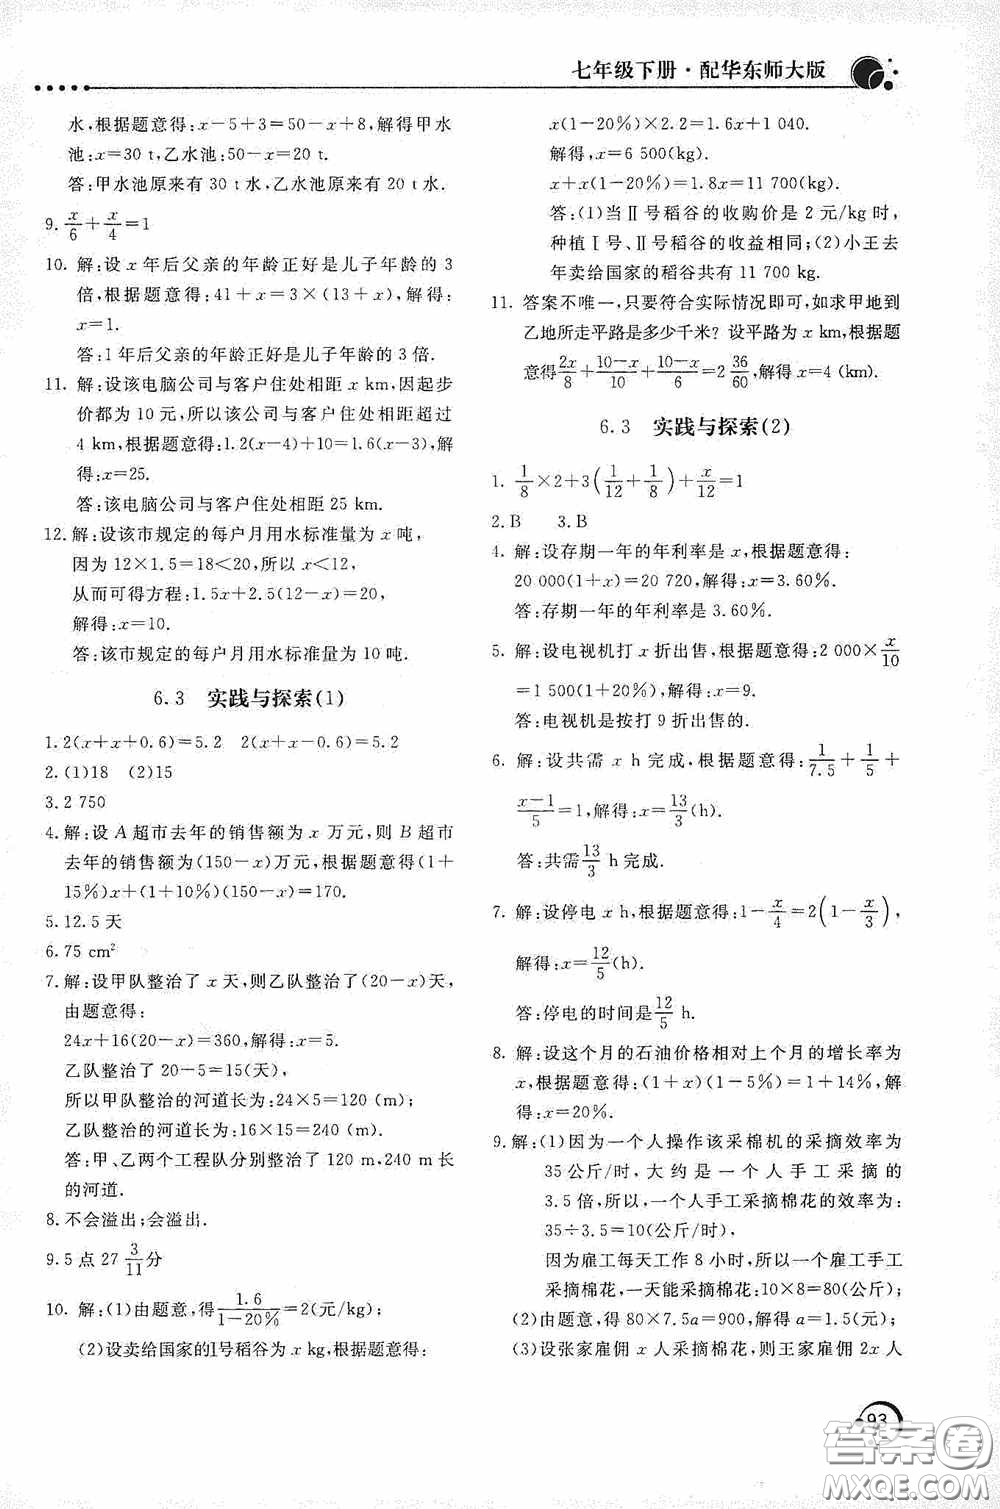 七年级下册·配华东师大版
水,根据题意得:x-5+3=50-x+8,解得甲水
池:x=30 t,乙水池:50-x=20 t.
答:甲水池原来有 30 t 水,乙水池原来有 20 t 水.
9. x/6+x/4=1
10. 解:设 x 年后父亲的年龄正好是儿子年龄的 3
倍,根据题意得:41+x=3×(13+x),解得:
x=1.
答:1 年后父亲的年龄正好是儿子年龄的 3 倍.
11. 解:设该电脑公司与客户住处相距 x km,因起步
价都为 10 元,所以该公司与客户住处相距超过
4 km,根据题意得:1.2(x-4)+10=1.6(x-3),解
得:x=25.
答:该电脑公司与客户住处相距 25 km.
12. 解:设该市规定的每户月用水标准量为 x 吨,
因为 12×1.5=18<20,所以 x<12,
从而可得方程:1.5x+2.5(12-x)=20,
解得:x=10.
答:该市规定的每户月用水标准量为 10 吨.
6.3 实践与探索(1)
1. 2(x+x+0.6)=5.2 2(x+x-0.6)=5.2
2. (1)18 (2)15
3. 2 750
4. 解:设 A 超市去年的销售额为 x 万元,则 B 超市
去年的销售额为(150-x)万元,根据题意得(1+
15%)x+(1+10%)(150-x)=170.
5. 12.5 天
6. 75 cm²
7. 解:设甲队整治了 x 天,则乙队整治了(20-x)天,
由题意得:
24x+16(20-x)=360,解得:x=5.
乙队整治了 20-5=15(天),
所以甲队整治的河道长为:24×5=120 (m);
乙队整治的河道长为:16×15=240 (m).
答:甲、乙两个工程队分别整治了 120 m,240 m
的河道.
8. 不会溢出;会溢出.
9. 5 点 27 3/11 分
10. 解:(1)由题意,得 1.6/(1-20%)=2(元/kg);
(2)设卖给国家的Ⅰ号稻谷为 x kg,根据题意得:
x(1-20%)×2.2=1.6x+1 040.
解得,x=6 500(kg).
x+x(1-20%)=1.8x=11 700(kg).
答:(1)当Ⅱ号稻谷的收购价是 2 元/kg 时,
种植Ⅰ号、Ⅱ号稻谷的收益相同;(2)小王去
年卖给国家的稻谷共有 11 700 kg.
11. 答案不唯一,只要符合实际情况即可,如求甲地到
乙地所走平路是多少千米?设平路为 x km,根据题
意得 2x/8+(10-x)/10+(10-x)/6=2 36/60,解得 x=4 (km).
6.3 实践与探索(2)
1. 1/8×2+3(1/12+1/8)+x/12=1
2. B 3. B
4. 解:设存期一年的年利率是 x,根据题意得:
20 000(1+x)=20 720,解得:x=3.60%.
答:存期一年的年利率是 3.60%.
5. 解:设电视机打 x 折出售,根据题意得:2 000×x/10
=1 500(1+20%),解得:x=9.
答:电视机是按打 9 折出售的.
6. 解:设共需 x h 完成,根据题意得:1/7.5+1/5+
(x-1)/5=1,解得:x=13/3(h).
答:共需 13/3 h 完成.
7. 解:设停电 x h,根据题意得:1-x/4=2(1-x/3),
解得:x=12/5(h).
答:停电的时间是 12/5 h.
8. 解:设这个月的石油价格相对上个月的增长率为
x,根据题意得:(1+x)(1-5%)=1+14%,解
得:x=20%.
9. 解:(1)因为一个人操作该采棉机的采摘效率为
35 公斤/时,大约是一个人手工采摘的
3.5 倍,所以,一个人手工采摘棉花的效率为:
35÷3.5=10(公斤/时),
因为雇工每天工作 8 小时,所以一个雇工手工
采摘棉花,一天能采摘棉花:10×8=80(公斤);
(2)由题意,得 80×7.5a=900,解得 a=1.5(元);
(3)设张家雇佣 x 人采摘棉花,则王家雇佣 2x 人
93
答案圈
MXQE.COM